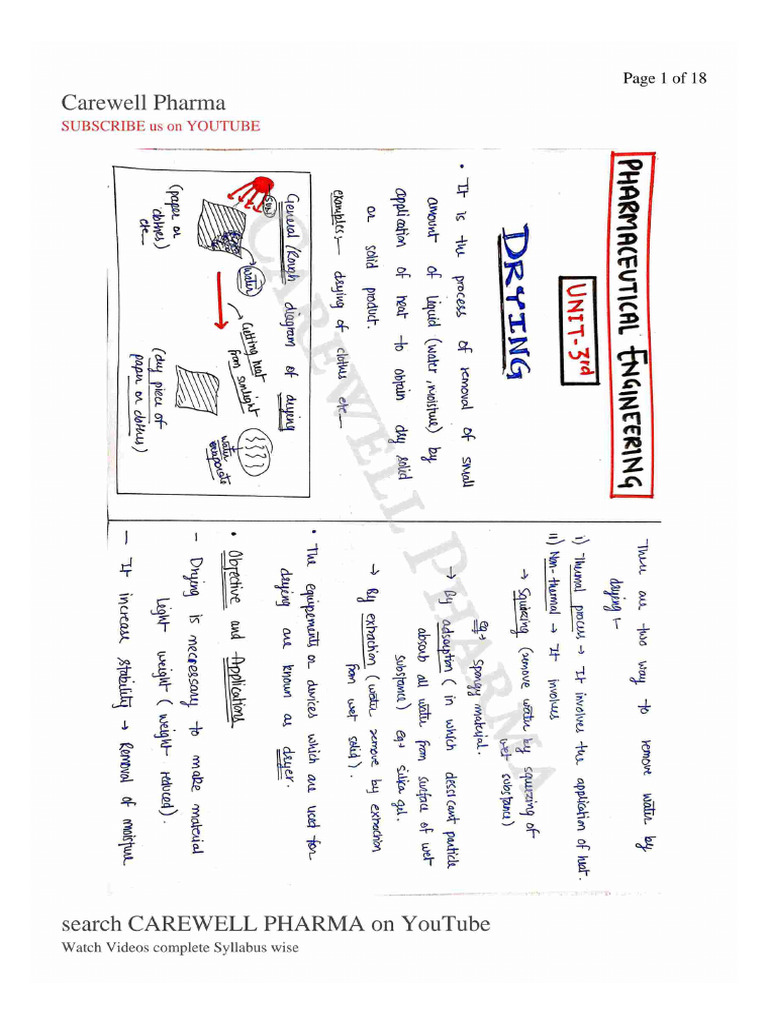 Page 1 of 18
Carewell Pharma
SUBSCRIBE us on YOUTUBE
PHARMACEUTICAL ENGINEERING
UNIT-3rd
DRYING
• It is the process of removal of small
amount of liquid (water, moisture) by
application of heat to obtain dry solid
or solid product.
examples:- drying of clothes etc—
General/Rough diagram of drying
Sun
water
(paper or
clothes)
etc—
→ Getting heat
from sunlight
water
evaporate
(dry piece of
paper or clothes)
There are two way to remove water by
drying:-
i) Thermal process → It involves the application of heat.
ii) Non-thermal → It involves
→ Squizing (remove water by squizing of
wet substance)
eg → spongy material.
→ By adsorption (in which desiccant particle
absorb all water from surface of wet
substance) eg → silica gel.
→ By extraction (water remove by extraction
from wet solid).
• The equipements or devices which are used for
drying are known as dryer.
• Objective and Applications
– Drying is necressary to make material
Light weight (weight reduced).
– It increase stability → Removal of moisture
CAREWELL PHARMA
search CAREWELL PHARMA on YouTube
Watch Videos complete Syllabus wise